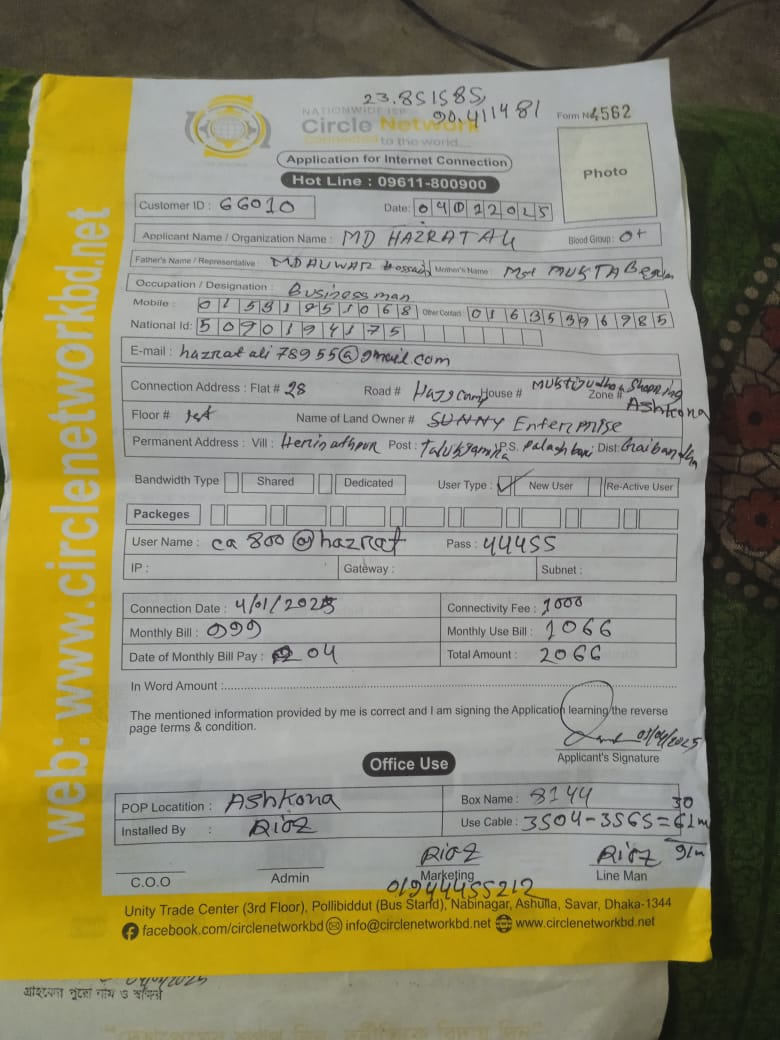 23.851585,
90.411481
NATIONWIDE ISP
Circle Network
Connected to the world...
Form No 4562
Application for Internet Connection
Hot Line : 09611-800900
Photo
Customer ID : 66010
Date: 04012025
Applicant Name / Organization Name : MD HAZRAT ALI Blood Group : O+
Father's Name / Representative : MD ALWAR Hossain Mother's Name : Mst MUKTA Begum
Occupation / Designation : Businessman
Mobile : Other Contact : 01635396985
National Id: 5090194175
E-mail : hazratali78955@gmail.com
Connection Address : Flat # 28 Road # Hajj camp House # Muktijudha Shopping Zone # Ashkona
Floor # 1st Name of Land Owner # SUNNY Enterprise
Permanent Address : Vill : Post : P.S. Palashbari Dist: Gaibandha
Bandwidth Type Shared Dedicated User Type : ✓ New User Re-Active User
Packeges
User Name : ca800@hazrat Pass : 44455
IP : Gateway : Subnet :
Connection Date : 4/01/2025 Connectivity Fee : 1000
Monthly Bill : 999 Monthly Use Bill : 1066
Date of Monthly Bill Pay : 04 Total Amount : 2066
In Word Amount :
The mentioned information provided by me is correct and I am signing the Application learning the reverse
page terms & condition.
Applicant's Signature
Office Use
POP Locatition : Ashkona Box Name : 8144
Installed By : Riaz Use Cable : 3504-3565=61m
30
91m
Riaz Riaz
C.O.O Admin Marketing Line Man
01944455212
Unity Trade Center (3rd Floor), Pollibiddut (Bus Stand), Nabinagar, Ashulia, Savar, Dhaka-1344
facebook.com/circlenetworkbd info@circlenetworkbd.net www.circlenetworkbd.net
web: www.circlenetworkbd.net
04/01/2025
গ্রাহকের পুরো নাম ও স্বাক্ষর